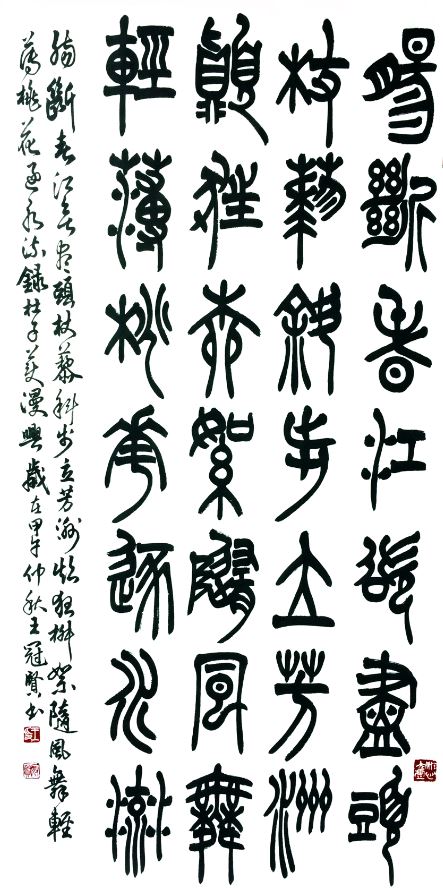 腸斷春江欲盡頭
杖藜斜步立芳洲
顛狂柳絮隨風舞
輕薄桃花逐水流
腸斷春江欲盡頭杖藜斜步立芳洲顛狂柳絮隨風舞輕
薄桃花逐水流錄杜子美漫興歲在甲午仲秋王冠賢書